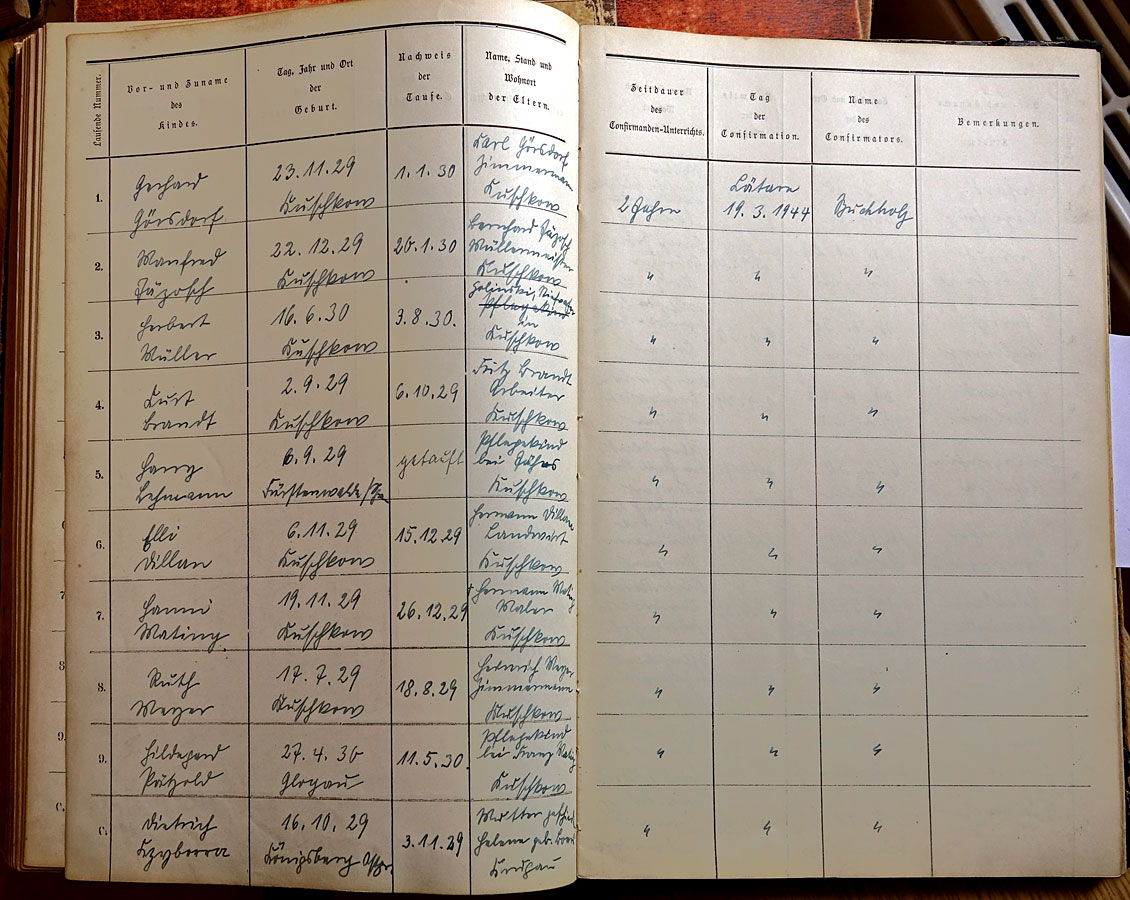 Laufende Nummer.
Vor- und Zuname
des
Kindes.
Tag, Jahr und Ort
der
Geburt.
Nachweis
der
Taufe.
Name, Stand und
Wohnort
der Eltern.
Zeitdauer
des
Confirmanden-Unterrichts.
Tag
der
Confirmation.
Name
des
Confirmators.
Bemerkungen.
1.
Gerhard
Görsdorf
23.11.29
Kuschkow
1.1.30
Karl Görsdorf
Zimmermann
Kuschkow
2 Jahre
Lätare
19.3.1944
Buchholz
2.
Manfred
Jäzosch
22.12.29
Kuschkow
26.1.30
Bernhard Jäzosch
Müllermeister
Kuschkow
"
"
"
3.
Herbert
Müller
16.6.30
Kuschkow
3.8.30.
Pflegekind
in
Kuschkow
"
"
"
4.
Kurt
Brandt
2.9.29
Kuschkow
6.10.29
Fritz Brandt
Arbeiter
Kuschkow
"
"
"
5.
Harry
Lehmann
6.9.29
Fürstenwalde/
getauft
Pflegekind
bei
Kuschkow
"
"
"
6.
Elli
Dillan
6.11.29
Kuschkow
15.12.29
Hermann Dillan
Landwirt
Kuschkow
"
"
"
7.
Hanni
Mating
19.11.29
Kuschkow
26.12.29
† Hermann Mating
Maler
Kuschkow
"
"
"
8.
Ruth
Meyer
17.7.29
Kuschkow
18.8.29
Heinrich Meyer
Zimmermann
Kuschkow
"
"
"
9.
Hildegard
Pätzold
27.4.30
Glogau
11.5.30.
Pflegekind
bei Franz Mating
Kuschkow
"
"
"
Dietrich
Czyborra
16.10.29
Königsberg Ostpr.
3.11.29
Mutter
Helene geb.
"
"
"